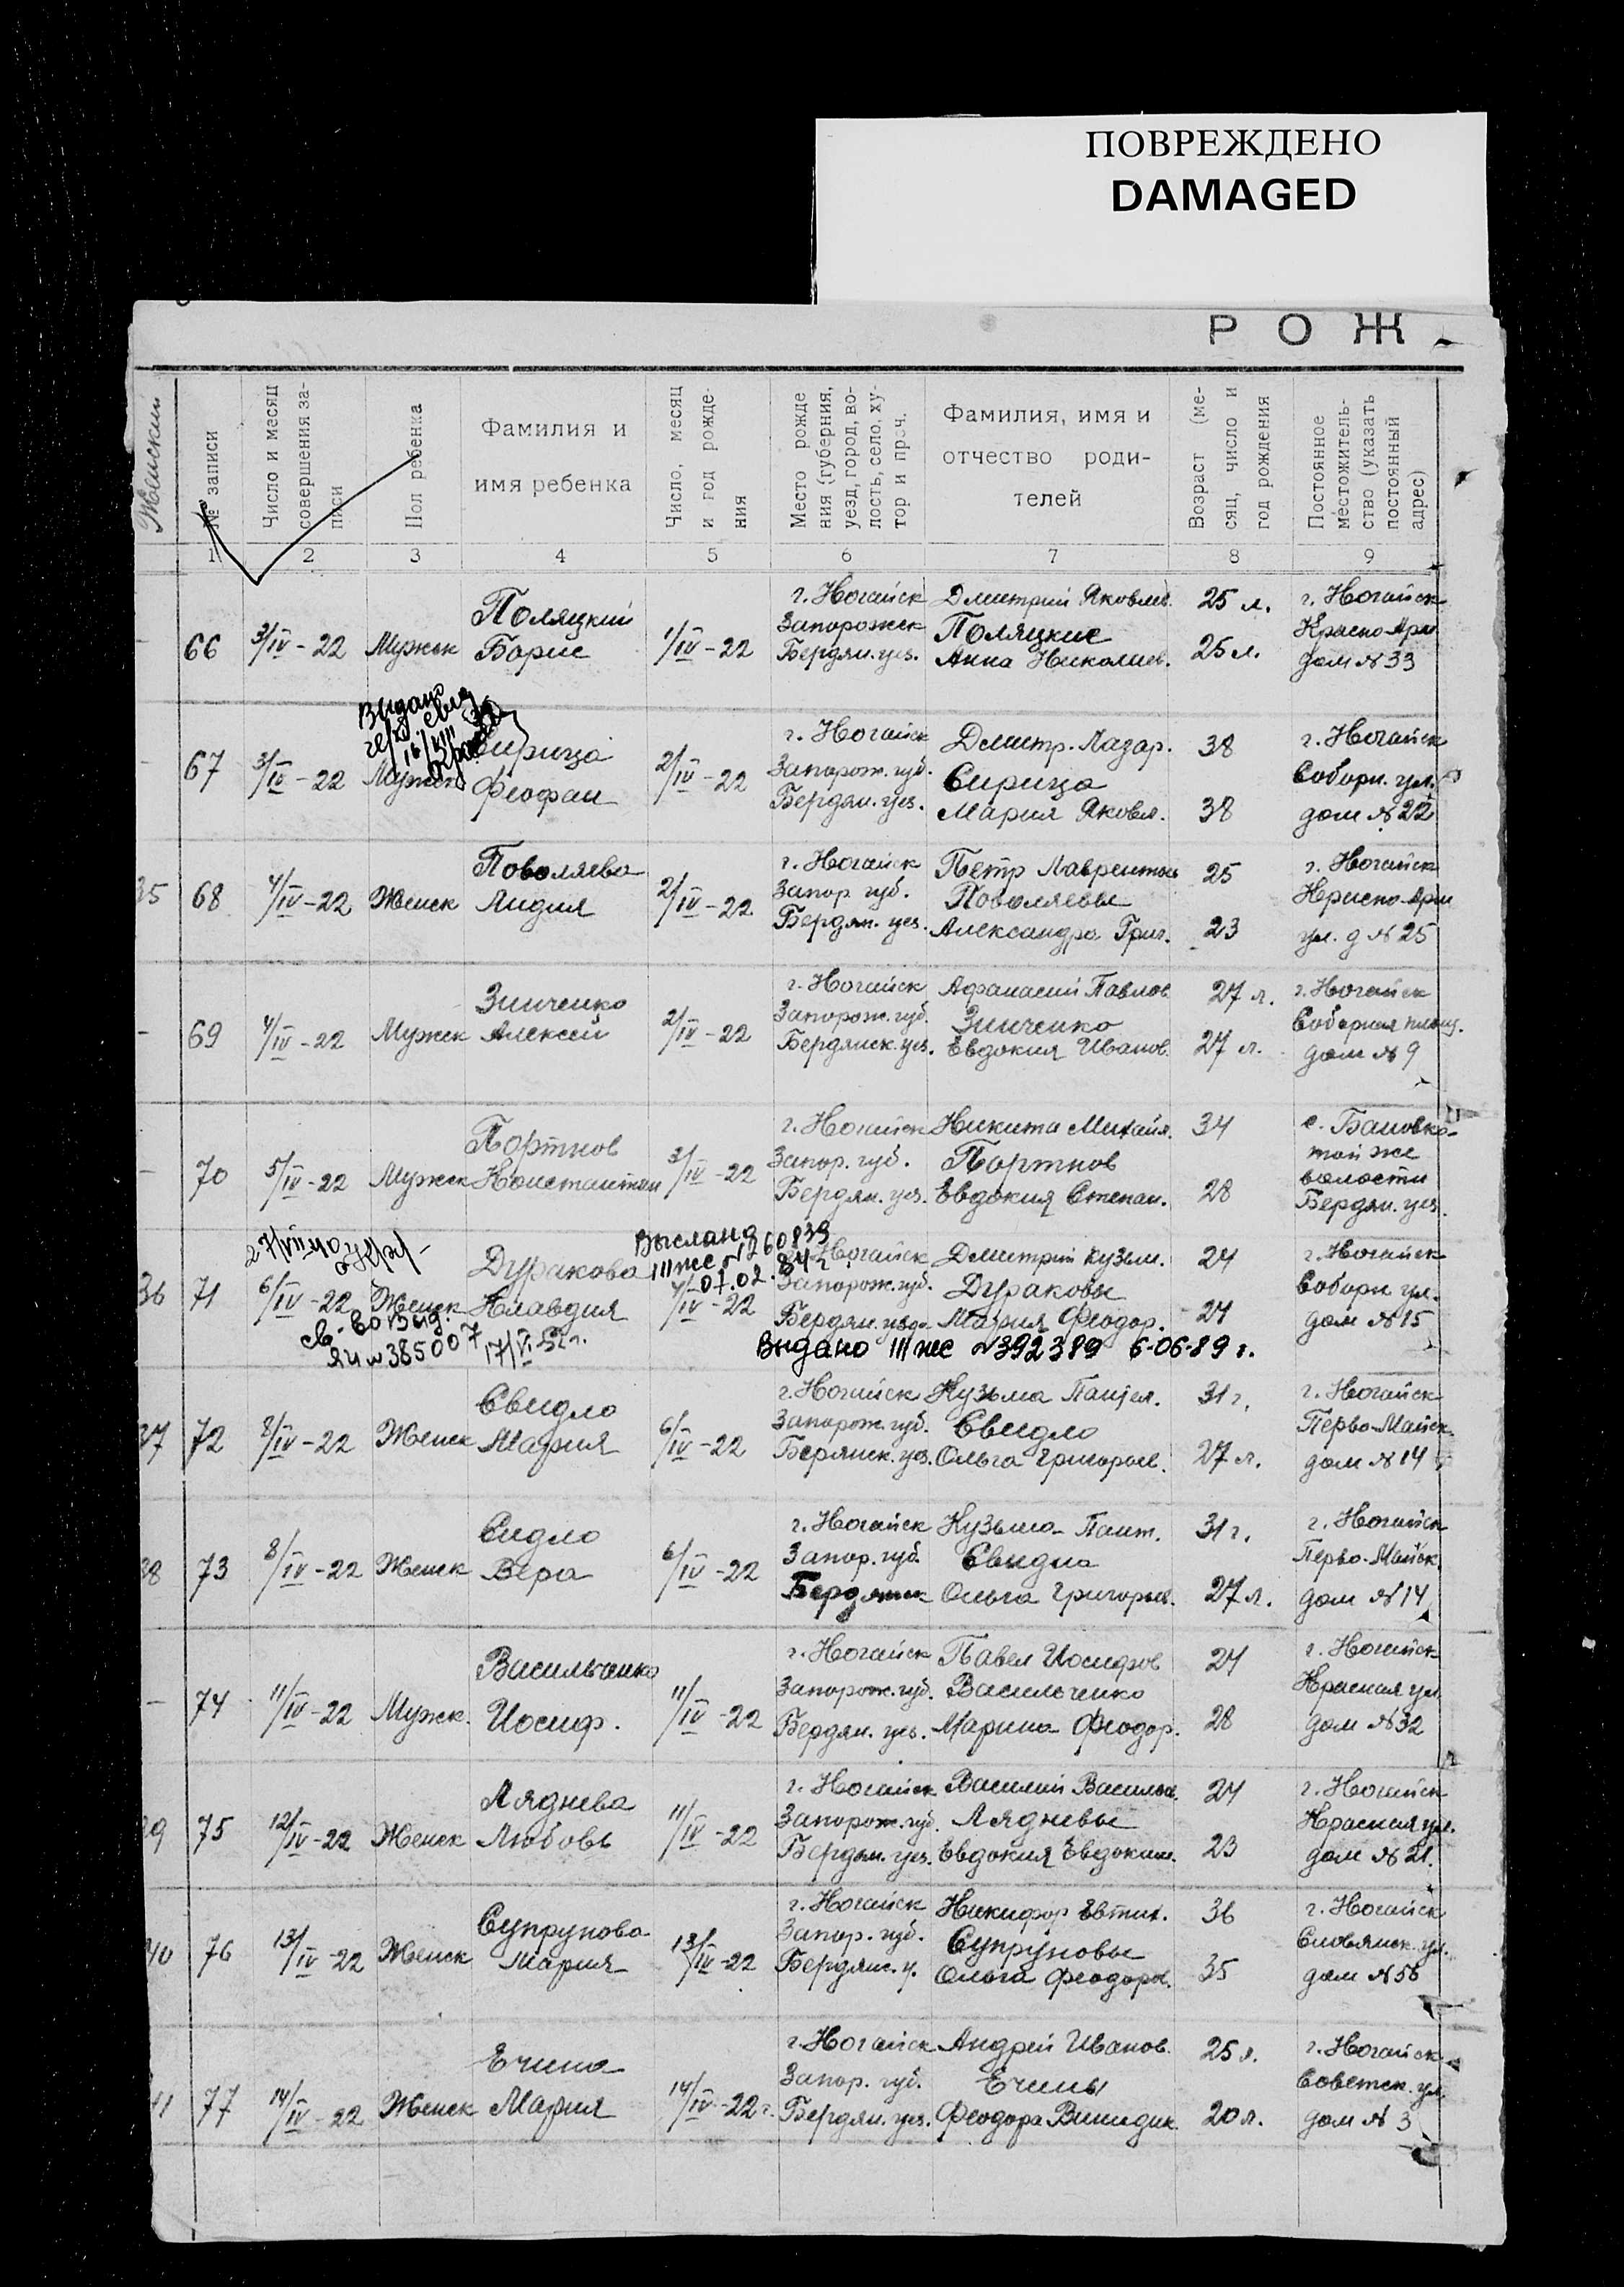 ПОВРЕЖДЕНО
DAMAGED
РОЖ
Женский
№ записи
Число и месяц
совершения за-
писи
Пол ребенка
Фамилия и
имя ребенка
Число, месяц
и год рожде-
ния
Место рожде
ния (губерния,
уезд, город, во-
лость, село, ху-
тор и проч.
Фамилия, имя и
отчество роди-
телей
Возраст (ме-
сяц, число и
год рождения
Постоянное
местожитель-
ство (указать
постоянный
адрес)
1 2 3 4 5 6 7 8 9
г. Ногайск Дмитрий Яковлев. 25 л. г. Ногайск
Поляцкий Запорожск Поляцкие Красно-Арм
– 66 3/IV-22 Мужск Борис 1/IV-22 Бердян. уез. Анна Николаев. 25 л. дом №33
Выдано
16/VIII
г. Ногайск Дмитр. Лазар. 38 г. Ногайск
Сирица Запорож. губ. Сирица Соборн. ул.
– 67 3/IV-22 Мужск Феофан 2/IV-22 Бердян. уез. Мария Яковл. 38 дом №22
г. Ногайск Петр Лаврентьев 25 г. Ногайск
Поволяева Запор губ. Поволяевы Красно-Арм
35 68 4/IV-22 Женск Лидия 2/IV-22 Бердян. уез. Александра Григ. 23 ул. д №25
г. Ногайск Афанасий Павлов 27 л. г. Ногайск
Зинченко Запорож. губ. Зинченко Соборная площ.
– 69 4/IV-22 Мужск Алексей 2/IV-22 Бердянск. уез. Евдокия Иванов. 27 л. дом №9
г. Ногайск Никита Михайл. 34 с. Бановка-
Портнов Запор. губ. Портнов той же
– 70 5/IV-22 Мужск Константин 3/IV-22 Бердян. уез. Евдокия Степан. 28 волости
Бердян. уез.
Выслано
III же №260839
01.02.84 г.
г. Ногайск Дмитрий Кузьм. 24 г. Ногайск
Дуракова Запорож. губ. Дураковы Соборн ул.
36 71 6/IV-22 Женск Клавдия 4/IV-22 Бердян. уезд. Мария Феодор. 24 дом №15
св-во выд.
ЯИ №385007 17/VI-52 г.
Выдано III же №392389 6-06-89 г.
г. Ногайск Кузьма Пантел. 31 г. г. Ногайск
Свидло Запорож. губ. Свидло Перво-Майск.
37 72 8/IV-22 Женск Мария 6/IV-22 Берянск. уез. Ольга Григорьев. 27 л. дом №14
г. Ногайск Кузьма Пант. 31 г. г. Ногайск
Сидло Запор. губ. Свидла Перво-Майск.
38 73 8/IV-22 Женск Вера 6/IV-22 Бердянск Ольга Григорьев. 27 л. дом №14
г. Ногайск Павел Иосифов 24 г. Ногайск
Васильченко Запорож. губ. Васильченко Красная ул
– 74 11/IV-22 Мужск. Иосиф. 11/IV-22 Бердян. уез. Марина Феодор. 28 дом №32
г. Ногайск Василий Васильев. 24 г. Ногайск
Ляднева Запорож. губ. Лядневы Красная ул.
39 75 12/IV-22 Женск Любовь 11/IV-22 Бердян. уез. Евдокия Евдоким. 23 дом №21.
г. Ногайск Никифор Евтих. 36 г. Ногайск
Супрунова Запор. губ. Супруновы Словянск. ул.
40 76 13/IV-22 Женск Мария 13/IV-22 Бердянс. у. Ольга Феодоров. 35 дом №56
г. Ногайск Андрей Иванов. 25 л. г. Ногайск
Ечина Запор. губ. Ечины Советск. ул.
41 77 14/IV-22 Женск Мария 14/IV-22 г. Бердян. уез. Феодора 20 л. дом №3